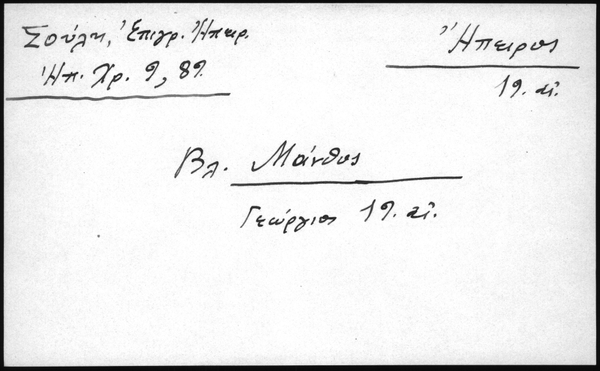 Σούλη, Ἐπιγρ. Ἠπειρ.
Ἠπ. Χρ. 9, 89.
Ἤπειρος
19. αἰ.
Βλ. Μάνθος
Γεώργιος 19. αἰ.